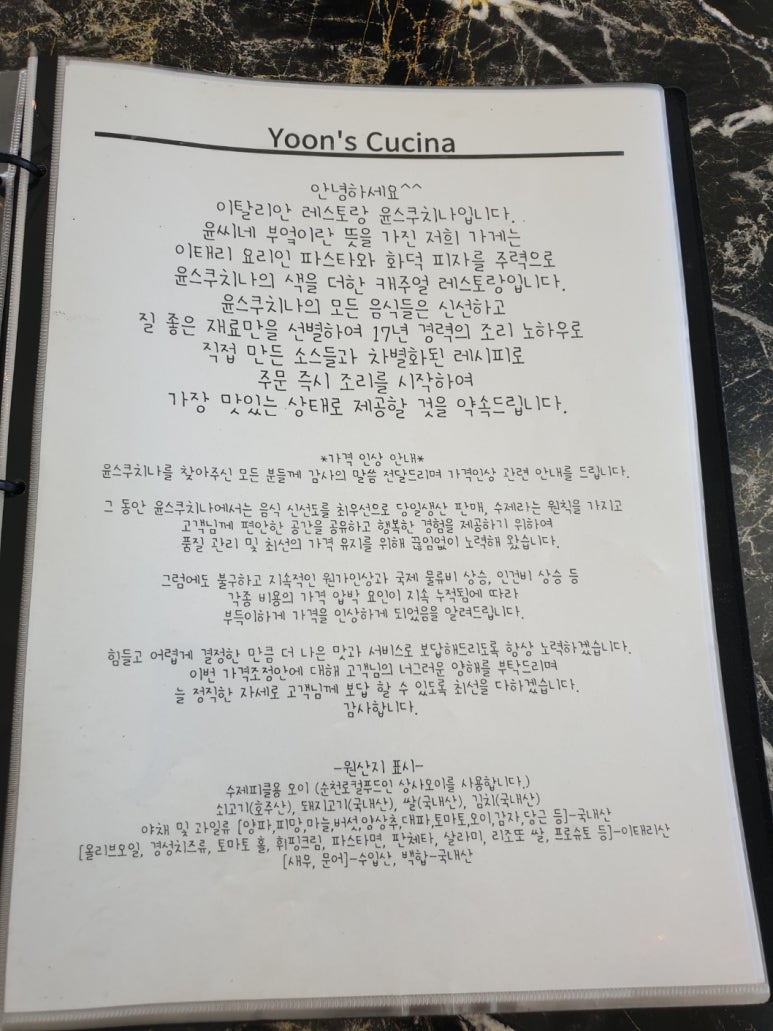 Yoon's Cucina
안녕하세요^^
이탈리안 레스토랑 윤스쿠치나입니다.
윤씨네 부엌이란 뜻을 가진 저희 가게는
이태리 요리인 파스타와 화덕 피자를 주력으로
윤스쿠치나의 색을 더한 캐주얼 레스토랑입니다.
윤스쿠치나의 모든 음식들은 신선하고
질 좋은 재료만을 선별하여 17년 경력의 조리 노하우로
직접 만든 소스들과 차별화된 레시피로
주문 즉시 조리를 시작하여
가장 맛있는 상태로 제공할 것을 약속드립니다.
*가격 인상 안내*
윤스쿠치나를 찾아주신 모든 분들께 감사의 말씀 전달드리며 가격인상 관련 안내를 드립니다.
그 동안 윤스쿠치나에서는 음식 신선도를 최우선으로 당일생산 판매, 수제라는 원칙을 가지고
고객님께 편안한 공간을 공유하고 행복한 경험을 제공하기 위하여
품질 관리 및 최선의 가격 유지를 위해 끊임없이 노력해 왔습니다.
그럼에도 불구하고 지속적인 원가인상과 국제 물류비 상승, 인건비 상승 등
각종 비용의 가격 압박 요인이 지속 누적됨에 따라
부득이하게 가격을 인상하게 되었음을 알려드립니다.
힘들고 어렵게 결정한 만큼 더 나은 맛과 서비스로 보답해드리도록 항상 노력하겠습니다.
이번 가격조정안에 대해 고객님의 너그러운 양해를 부탁드리며
늘 정직한 자세로 고객님께 보답 할 수 있도록 최선을 다하겠습니다.
감사합니다.
-원산지 표시-
수제피클용 오이 (순천로컬푸드인 상사오이를 사용합니다.)
쇠고기(호주산), 돼지고기(국내산), 쌀(국내산), 김치(국내산)
야채 및 과일류 [양파,피망,마늘,버섯,양상추,대파,토마토,오이,감자,당근 등]-국내산
[올리브오일, 경성치즈류, 토마토 홀, 휘핑크림, 파스타면, 판체타, 살라미, 리조또 쌀, 프로슈토 등]-이태리산
[새우, 문어]-수입산, 백합-국내산